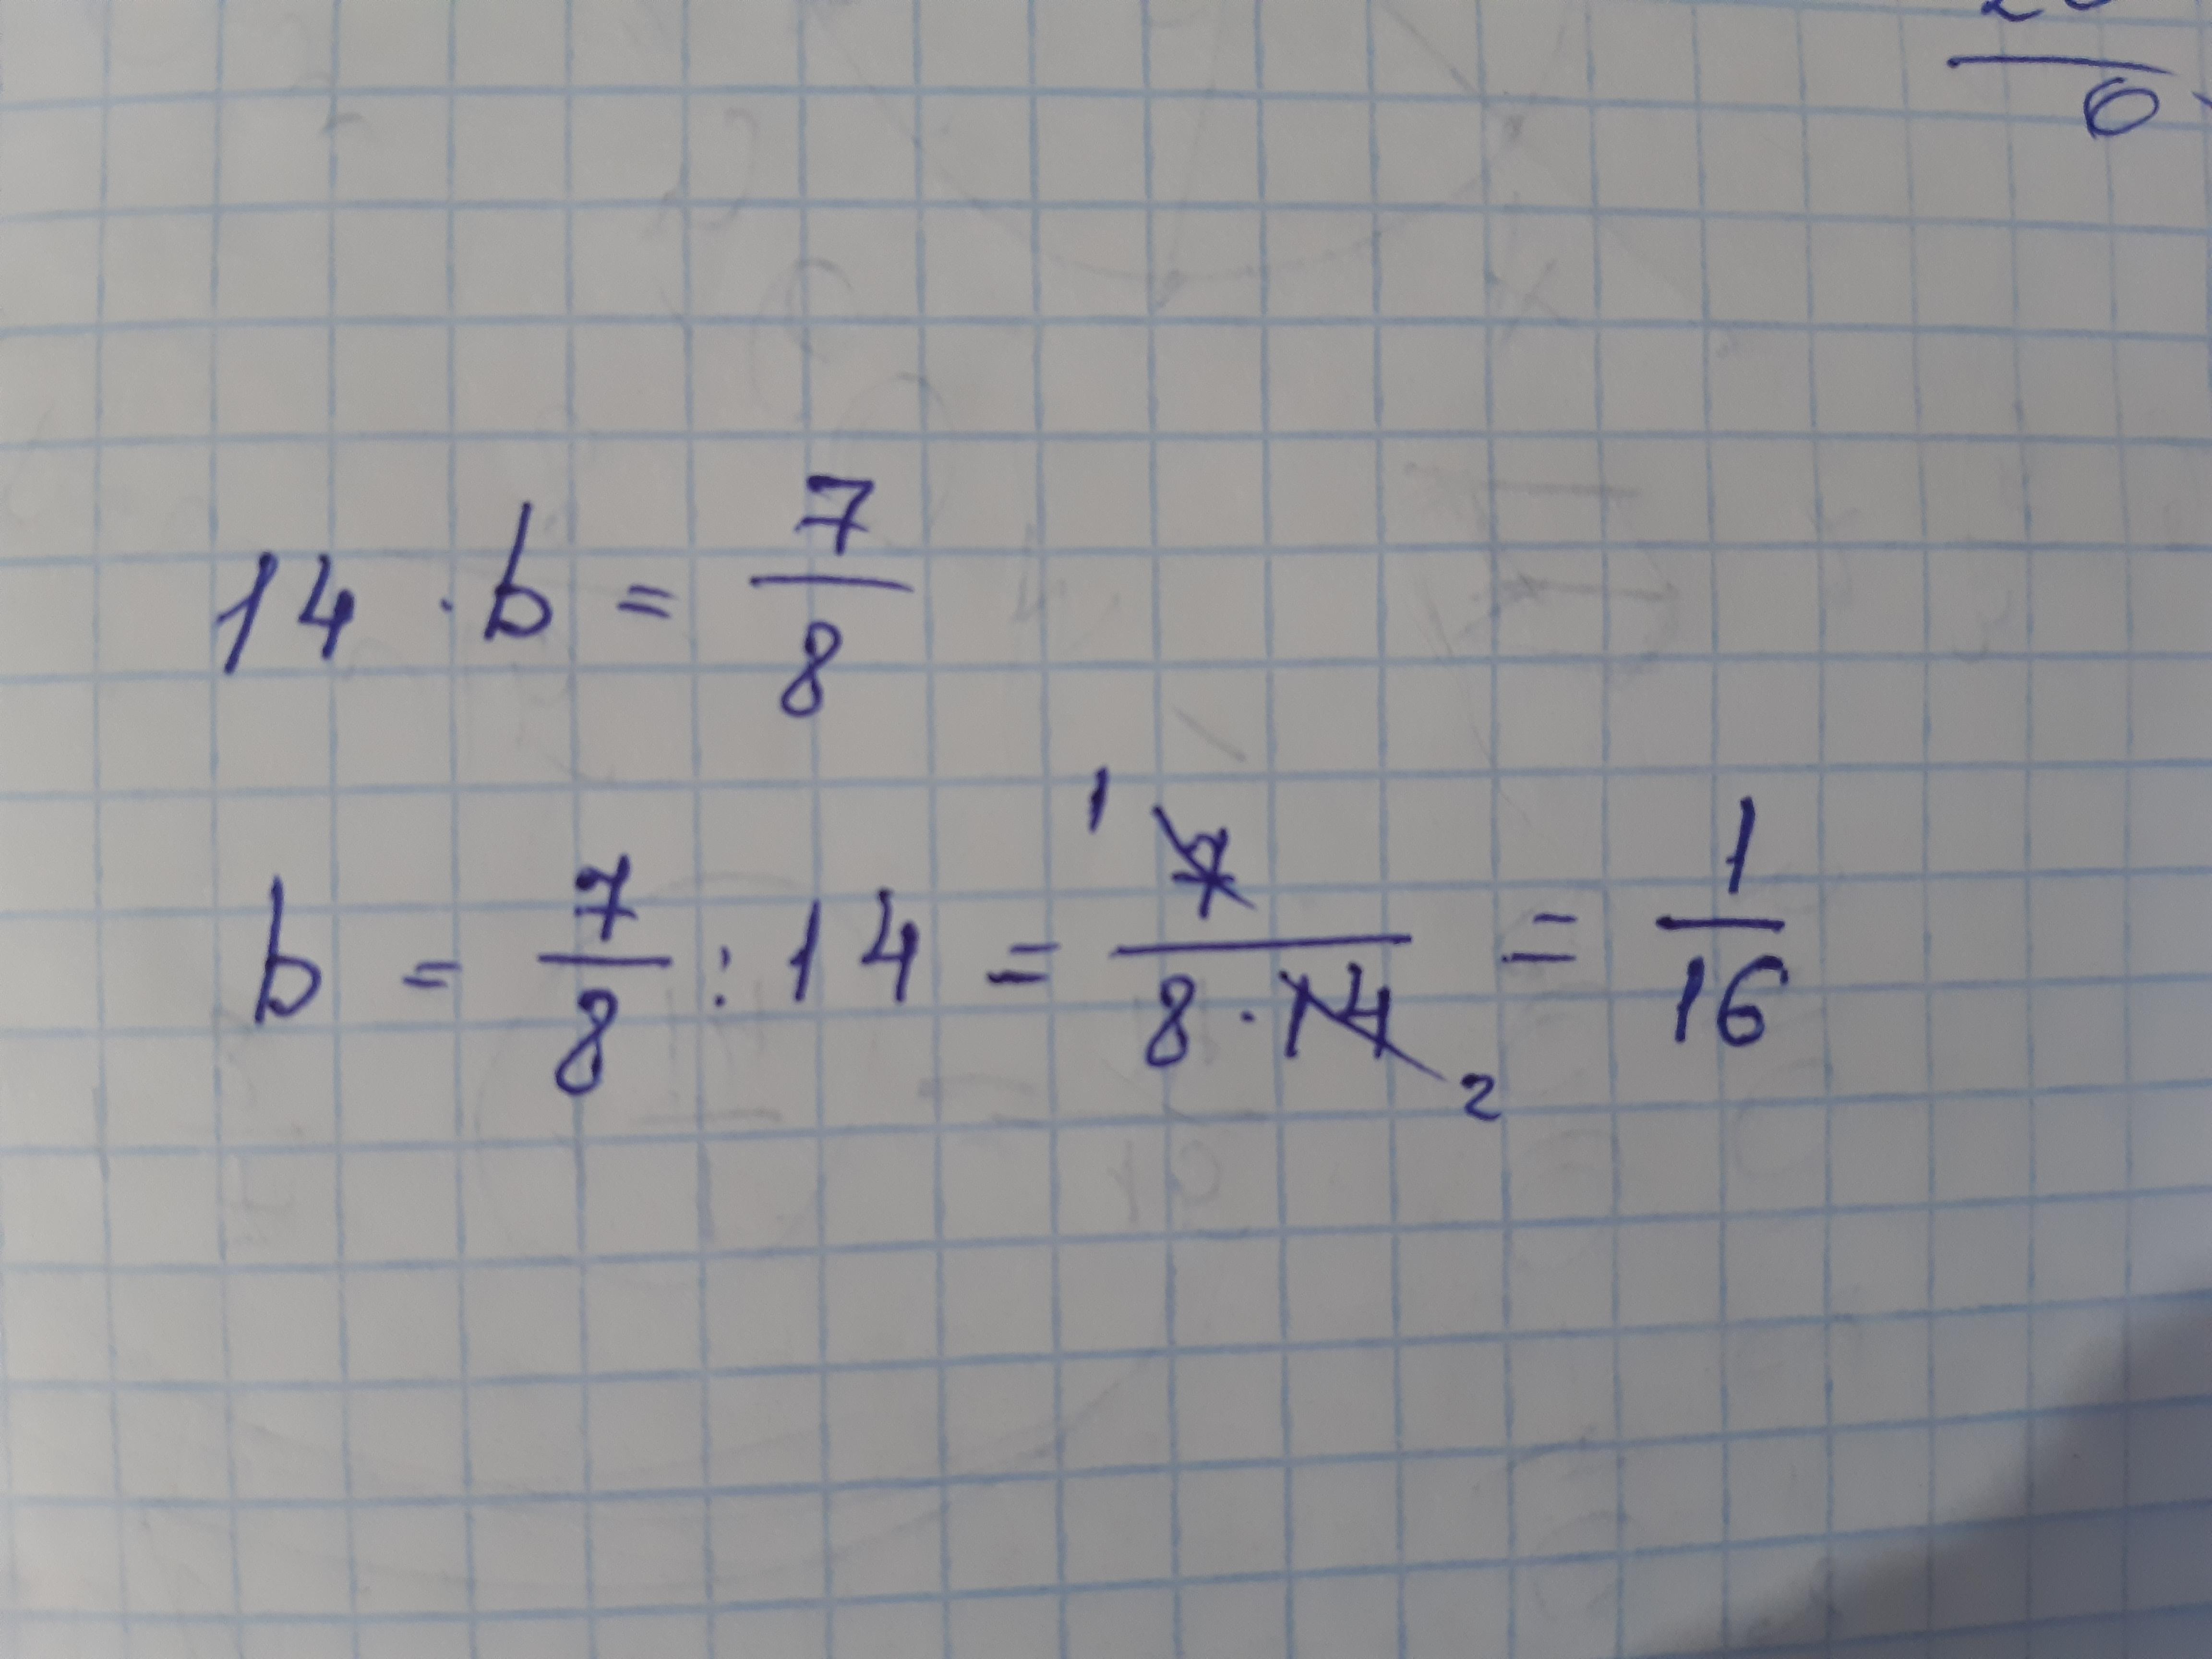 0
14 · b = 7/8
b = 7/8 : 14 = 1 7/8 · 14 2 = 1/16